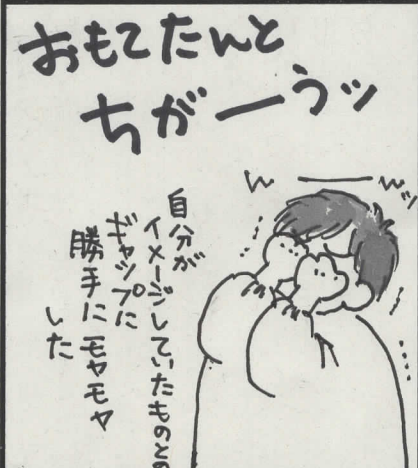 おもてたんと
ちがーうッ
w ー wッ
自分が
イメージしていたものとの
ギャップに
勝手にモヤモヤ
した